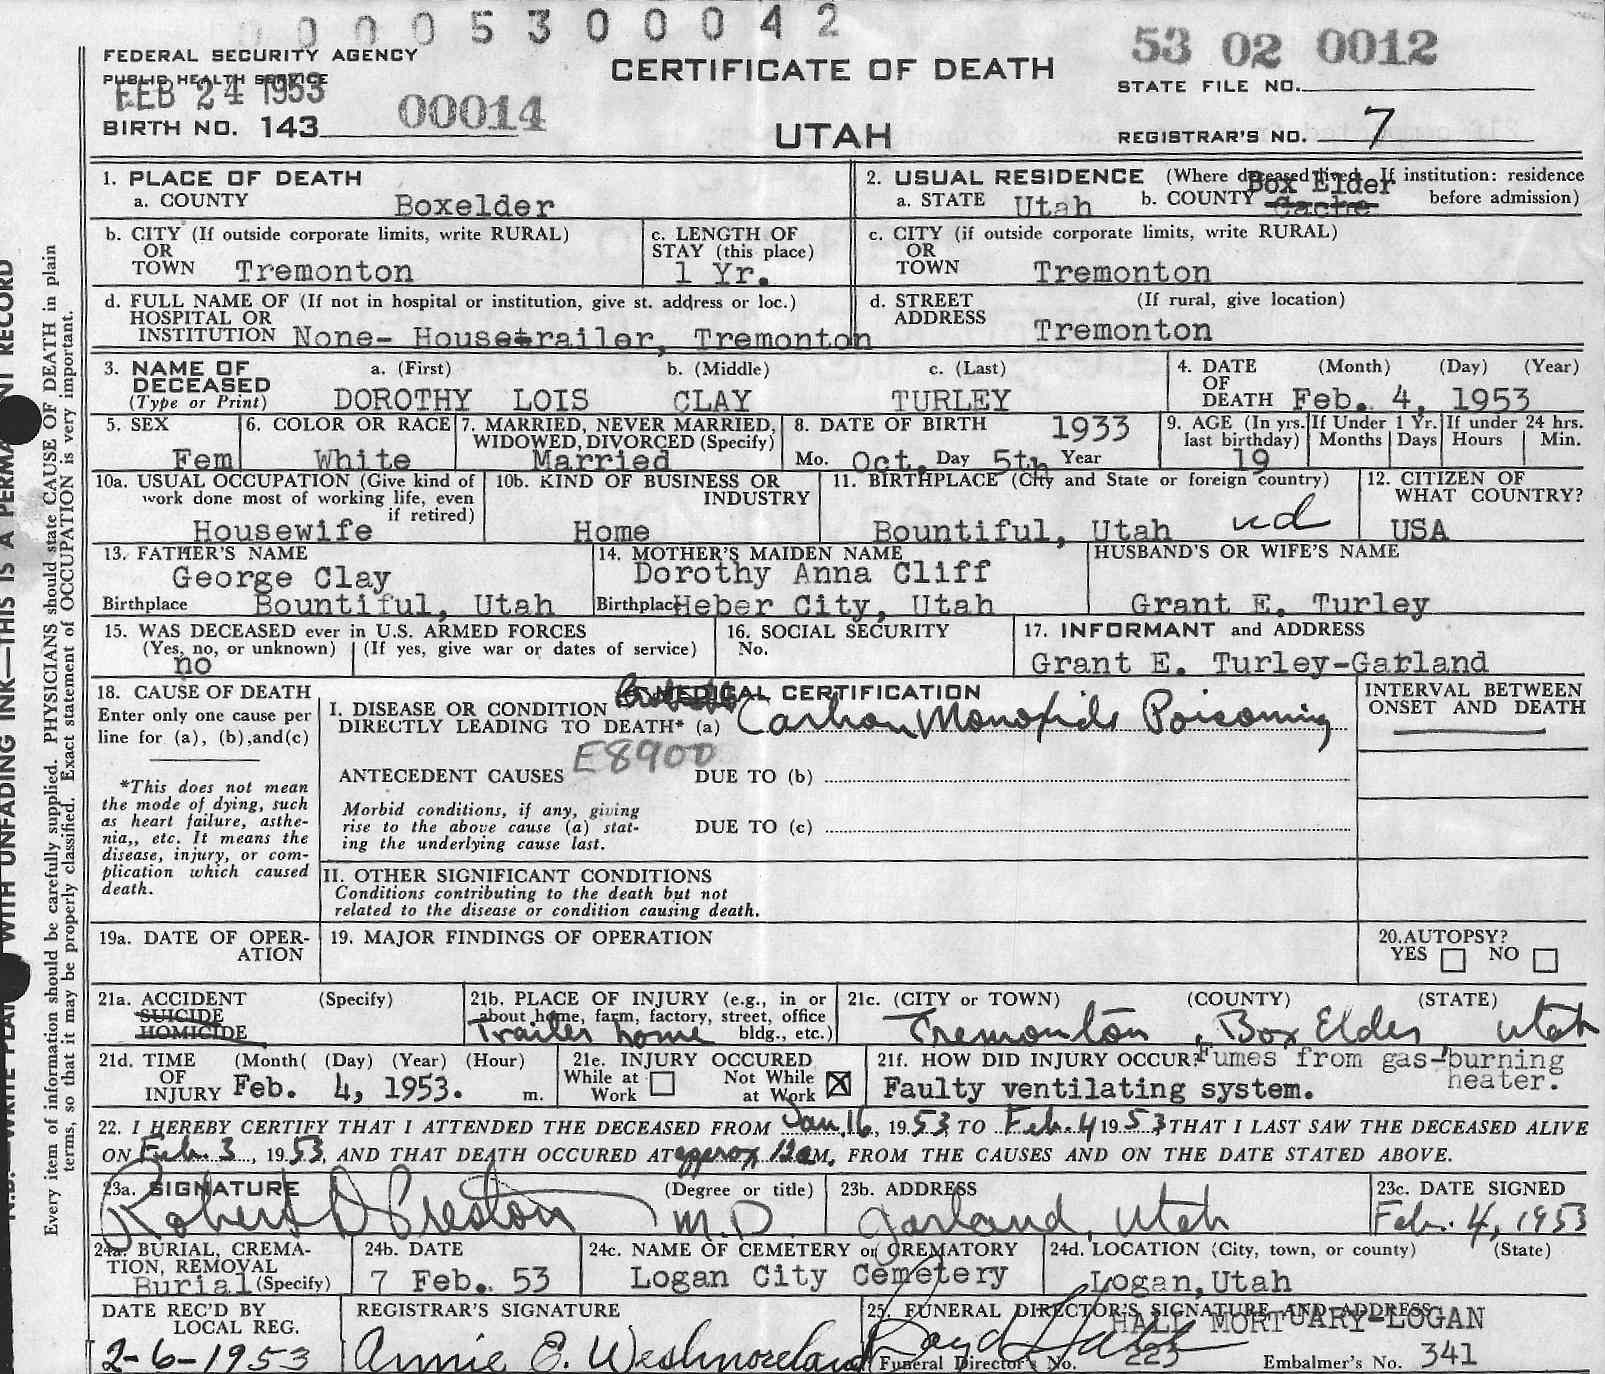 0 0 0 5 3 0 0 0 4 2
FEDERAL SECURITY AGENCY
PUBLIC HEALTH SERVICE
FEB 24 1953
BIRTH NO. 143 00014
CERTIFICATE OF DEATH
UTAH
53 02 0012
STATE FILE NO.
REGISTRAR'S NO. 7
1. PLACE OF DEATH
a. COUNTY Boxelder
2. USUAL RESIDENCE (Where deceased lived. If institution: residence before admission)
a. STATE Utah b. COUNTY Box Elder Cache
b. CITY (If outside corporate limits, write RURAL)
OR
TOWN Tremonton
c. LENGTH OF
STAY (this place)
1 Yr.
c. CITY (if outside corporate limits, write RURAL)
OR
TOWN Tremonton
d. FULL NAME OF (If not in hospital or institution, give st. address or loc.)
HOSPITAL OR
INSTITUTION None- Housetrailer, Tremonton
d. STREET (If rural, give location)
ADDRESS Tremonton
3. NAME OF
DECEASED
(Type or Print)
a. (First) b. (Middle) c. (Last)
DOROTHY LOIS CLAY TURLEY
4. DATE (Month) (Day) (Year)
OF
DEATH Feb. 4, 1953
5. SEX
Fem
6. COLOR OR RACE
White
7. MARRIED, NEVER MARRIED,
WIDOWED, DIVORCED (Specify)
Married
8. DATE OF BIRTH 1933
Mo. Oct. Day 5th Year
9. AGE (In yrs.
last birthday)
19
If Under 1 Yr.
Months Days
If under 24 hrs.
Hours Min.
10a. USUAL OCCUPATION (Give kind of
work done most of working life, even
if retired)
Housewife
10b. KIND OF BUSINESS OR
INDUSTRY
Home
11. BIRTHPLACE (City and State or foreign country)
Bountiful, Utah
12. CITIZEN OF
WHAT COUNTRY?
USA
13. FATHER'S NAME
George Clay
Birthplace Bountiful, Utah
14. MOTHER'S MAIDEN NAME
Dorothy Anna Cliff
Birthplace Heber City, Utah
HUSBAND'S OR WIFE'S NAME
Grant E. Turley
15. WAS DECEASED ever in U.S. ARMED FORCES
(Yes, no, or unknown) (If yes, give war or dates of service)
no
16. SOCIAL SECURITY
No.
17. INFORMANT and ADDRESS
Grant E. Turley-Garland
18. CAUSE OF DEATH
Enter only one cause per
line for (a), (b),and(c)
*This does not mean
the mode of dying, such
as heart failure, asthe-
nia,, etc. It means the
disease, injury, or com-
plication which caused
death.
MEDICAL CERTIFICATION
I. DISEASE OR CONDITION
DIRECTLY LEADING TO DEATH* (a) Carbon Monoxide Poisoning
E8900
ANTECEDENT CAUSES DUE TO (b)
Morbid conditions, if any, giving
rise to the above cause (a) stat-
ing the underlying cause last.
DUE TO (c)
II. OTHER SIGNIFICANT CONDITIONS
Conditions contributing to the death but not
related to the disease or condition causing death.
INTERVAL BETWEEN
ONSET AND DEATH
19a. DATE OF OPER-
ATION
19. MAJOR FINDINGS OF OPERATION
20.AUTOPSY?
YES NO
21a. ACCIDENT (Specify)
SUICIDE
HOMICIDE
21b. PLACE OF INJURY (e.g., in or
about home, farm, factory, street, office
bldg., etc.)
Trailer home
21c. (CITY or TOWN) (COUNTY) (STATE)
Tremonton, Box Elder Utah
21d. TIME (Month( (Day) (Year) (Hour)
OF
INJURY Feb. 4, 1953. m.
21e. INJURY OCCURED
While at Work Not While at Work X
21f. HOW DID INJURY OCCUR? Fumes from gas-burning
heater.
Faulty ventilating system.
22. I HEREBY CERTIFY THAT I ATTENDED THE DECEASED FROM Jan, 16, 1953, TO Feb. 4 1953, THAT I LAST SAW THE DECEASED ALIVE
ON Feb. 3, 1953, AND THAT DEATH OCCURED AT approx 12 a M, FROM THE CAUSES AND ON THE DATE STATED ABOVE.
23a. SIGNATURE (Degree or title)
Robert D Preston M.D.
23b. ADDRESS
Garland, Utah
23c. DATE SIGNED
Feb. 4, 1953
24a. BURIAL, CREMA-
TION, REMOVAL
Burial (Specify)
24b. DATE
7 Feb. 53
24c. NAME OF CEMETERY or CREMATORY
Logan City Cemetery
24d. LOCATION (City, town, or county) (State)
Logan,Utah
DATE REC'D BY
LOCAL REG.
2-6-1953
REGISTRAR'S SIGNATURE
Annie E. Westmoreland
25. FUNERAL DIRECTOR'S SIGNATURE AND ADDRESS
HALL MORTUARY-LOGAN
Funeral Director's No. 223 Embalmer's No. 341
Every item of information should be carefully supplied. PHYSICIANS should state CAUSE OF DEATH in plain
terms, so that it may be properly classified. Exact statement of OCCUPATION is very important.
WITH UNFADING INK—THIS IS A